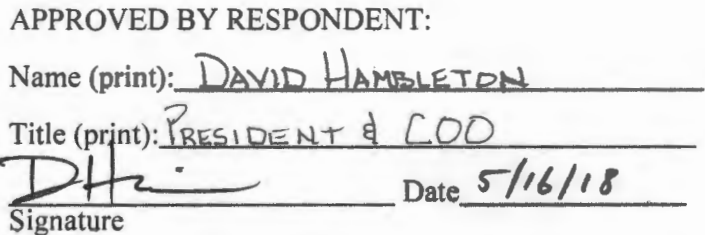 APPROVED BY RESPONDENT:
Name (print): DAVID HAMBLETON
Title (print): PRESIDENT & COO
Date 5/16/18
Signature